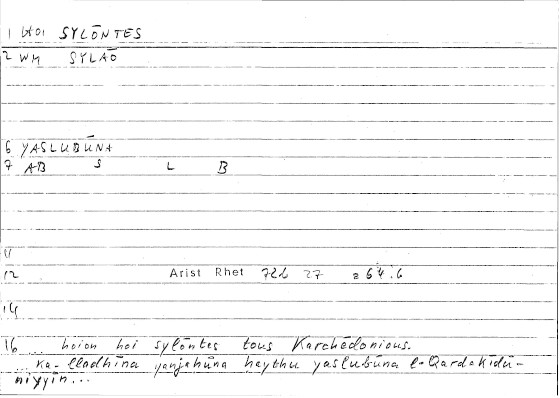 1 HOI SYLŌNTES
2 WM SYLAŌ
6 YASLUBŪNA
7 AB S L B
11
12 Arist Rhet 72b 27 = 64.6
14
16 ... hoion hoi sylōntes tous Karchēdonious.
... ka-lladhīna yanjahūna haythu yaslubūna l-Qardakīdū-
niyyīn...